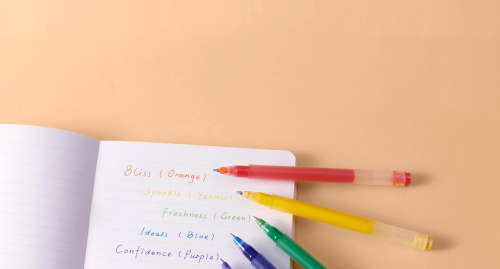 Bliss (Orange)
Sparkle (Yellow)
Freshness (Green)
Ideas (Blue)
Confidence (Purple)